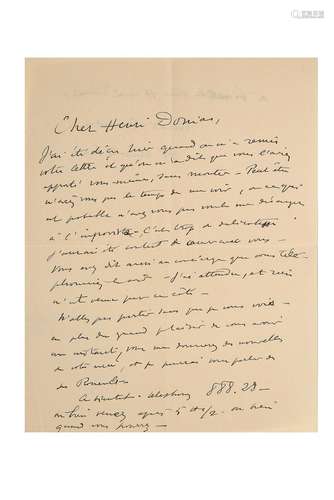 Cher Henri Domias,
J'ai été déçu hier quand on m'a remis
votre lettre et qu'on m'a dit que vous l'aviez
apporté vous-même, sans monter - Peut être
n'avez vous pas le temps de me voir, ou ce qui
est possible n'avez vous pas voulu me déranger
à l'improviste - C'est trop de délicatesse
J'aurais été content de causer avec vous -
Vous avez dit aussi au concierge que vous télé-
phoneriez le soir - J'ai attendu, et rien
n'est venu
N'allez pas partir sans que je vous voie -
en plus du grand plaisir de vous avoir
un instant, vous me donnerez des nouvelles
de votre et je pourrai vous parler de
des
A bientôt - téléphonez 888.23 -
ou bien venez après 5 H 1/2 - ou bien
quand vous pourrez -